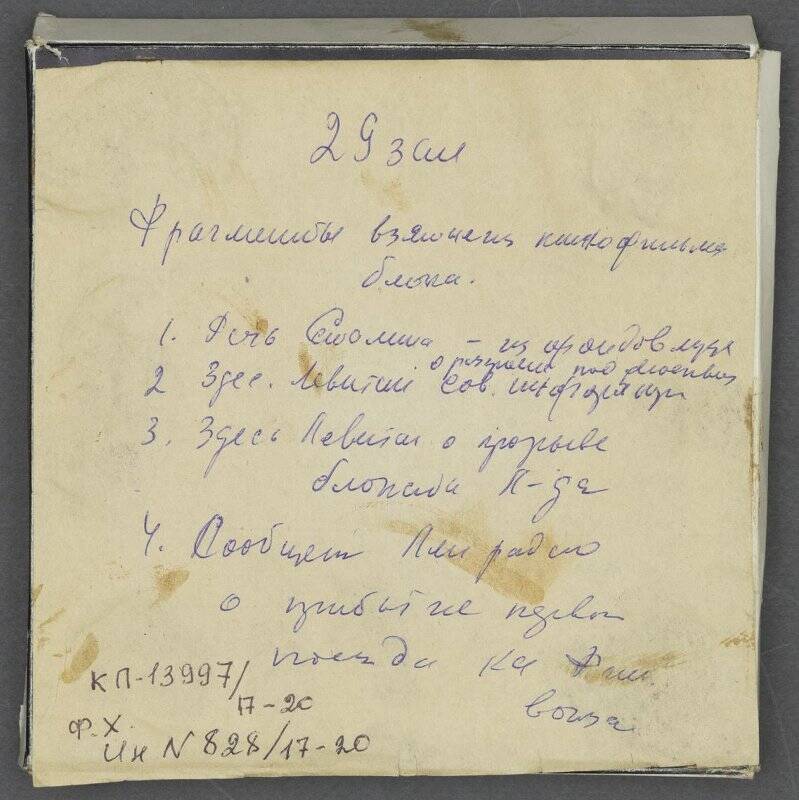 29 зал
Фрагменты взяты из кинофильма
блока.
1. Речь Сталина – из фондов музея
о разгроме под Москвой
2 Здес. Левитан Сов. информ
3. Здесь Левитан о прорыве
блокада Л-да
4. Сообщен Лен радио
о прибытие первого
поезда на Фин.
вокза
КП-13997/
17-20
Ф.Х.
Ин N 828/17-20